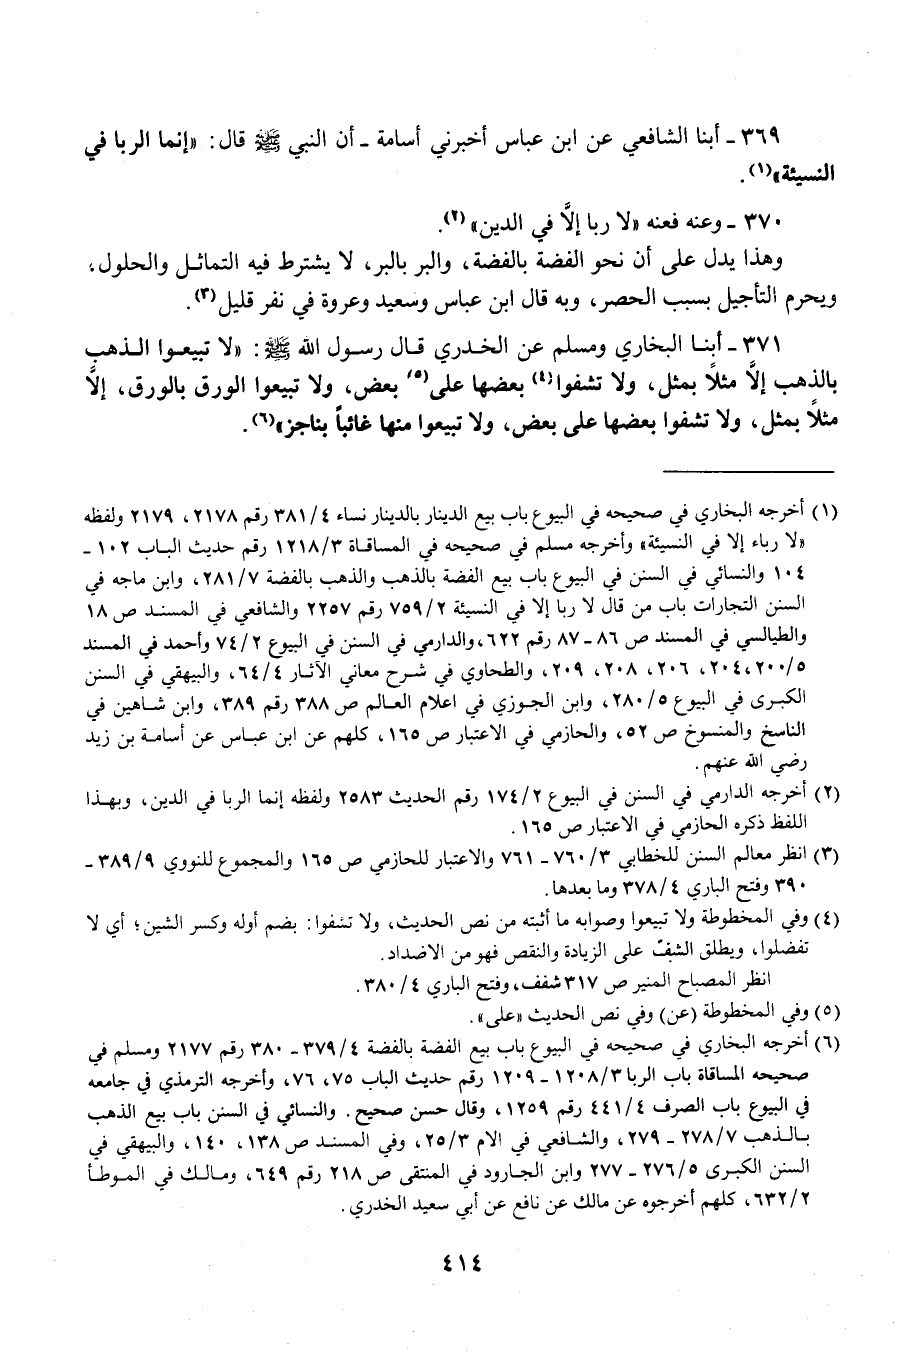 ٣٦٩ ـ أبنا الشافعي عن ابن عباس أخبرني أسامة ـ أن النبي ﷺ قال: «إنما الربا في
النسيئة»(١).
٣٧٠ ـ وعنه فعنه «لا ربا إلَّا في الدين»(٢).
وهذا يدل على أن نحو الفضة بالفضة، والبر بالبر، لا يشترط فيه التماثل والحلول،
ويحرم التأجيل بسبب الحصر، وبه قال ابن عباس وسعيد وعروة في نفر قليل(٣).
٣٧١ ـ أبنا البخاري ومسلم عن الخدري قال رسول الله ﷺ: «لا تبيعوا الذهب
بالذهب إلَّا مثلاً بمثل، ولا تشفوا(٤) بعضها على(٥) بعض، ولا تبيعوا الورق بالورق، إلَّا
مثلاً بمثل، ولا تشفوا بعضها على بعض، ولا تبيعوا منها غائباً بناجز»(٦).
(١) أخرجه البخاري في صحيحه في البيوع باب بيع الدينار بالدينار نساء ٣٨١/٤ رقم ٢١٧٨، ٢١٧٩ ولفظه
«لا رباء إلا في النسيئة» وأخرجه مسلم في صحيحه في المساقاة ١٢١٨/٣ رقم حديث الباب ١٠٢ ـ
١٠٤ والنسائي في السنن في البيوع باب بيع الفضة بالذهب والذهب بالفضة ٢٨١/٧، وابن ماجه في
السنن التجارات باب من قال لا ربا إلا في النسيئة ٧٥٩/٢ رقم ٢٢٥٧ والشافعي في المسند ص ١٨
والطيالسي في المسند ص ٨٦ ـ ٨٧ رقم ٦٢٢، والدارمي في السنن في البيوع ٧٤/٢ وأحمد في المسند
٢٠٠/٥، ٢٠٤، ٢٠٦، ٢٠٨، ٢٠٩، والطحاوي في شرح معاني الآثار ٦٤/٤، والبيهقي في السنن
الكبرى في البيوع ٢٨٠/٥، وابن الجوزي في اعلام العالم ص ٣٨٨ رقم ٣٨٩، وابن شاهين في
الناسخ والمنسوخ ص ٥٢، والحازمي في الاعتبار ص ١٦٥، كلهم عن ابن عباس عن أسامة بن زيد
رضي الله عنهم.
(٢) أخرجه الدارمي في السنن في البيوع ١٧٤/٢ رقم الحديث ٢٥٨٣ ولفظه إنما الربا في الدين، وبهذا
اللفظ ذكره الحازمي في الاعتبار ص ١٦٥.
(٣) انظر معالم السنن للخطابي ٧٦٠/٣ ـ ٧٦١ والاعتبار للحازمي ص ١٦٥ والمجموع للنووي ٣٨٩/٩ ـ
٣٩٠ وفتح الباري ٣٧٨/٤ وما بعدها.
(٤) وفي المخطوطة ولا تبيعوا وصوابه ما أثبته من نص الحديث، ولا تشفوا: بضم أوله وكسر الشين؛ أي لا
تفضلوا، ويطلق الشفّ على الزيادة والنقص فهو من الاضداد.
انظر المصباح المنير ص ٣١٧ شفف، وفتح الباري ٣٨٠/٤.
(٥) وفي المخطوطة (عن) وفي نص الحديث «على».
(٦) أخرجه البخاري في صحيحه في البيوع باب بيع الفضة بالفضة ٣٧٩/٤ ـ ٣٨٠ رقم ٢١٧٧ ومسلم في
صحيحه المساقاة باب الربا ١٢٠٨/٣ ـ ١٢٠٩ رقم حديث الباب ٧٥، ٧٦، وأخرجه الترمذي في جامعه
في البيوع باب الصرف ٤٤١/٤ رقم ١٢٥٩، وقال حسن صحيح. والنسائي في السنن باب بيع الذهب
بالذهب ٢٧٨/٧ ـ ٢٧٩، والشافعي في الام ٢٥/٣، وفي المسند ص ١٣٨، ١٤٠، والبيهقي في
السنن الكبرى ٢٧٦/٥ ـ ٢٧٧ وابن الجارود في المنتقى ص ٢١٨ رقم ٦٤٩، ومالك في الموطأ
٦٣٢/٢، كلهم أخرجوه عن مالك عن نافع عن أبي سعيد الخدري.
٤١٤